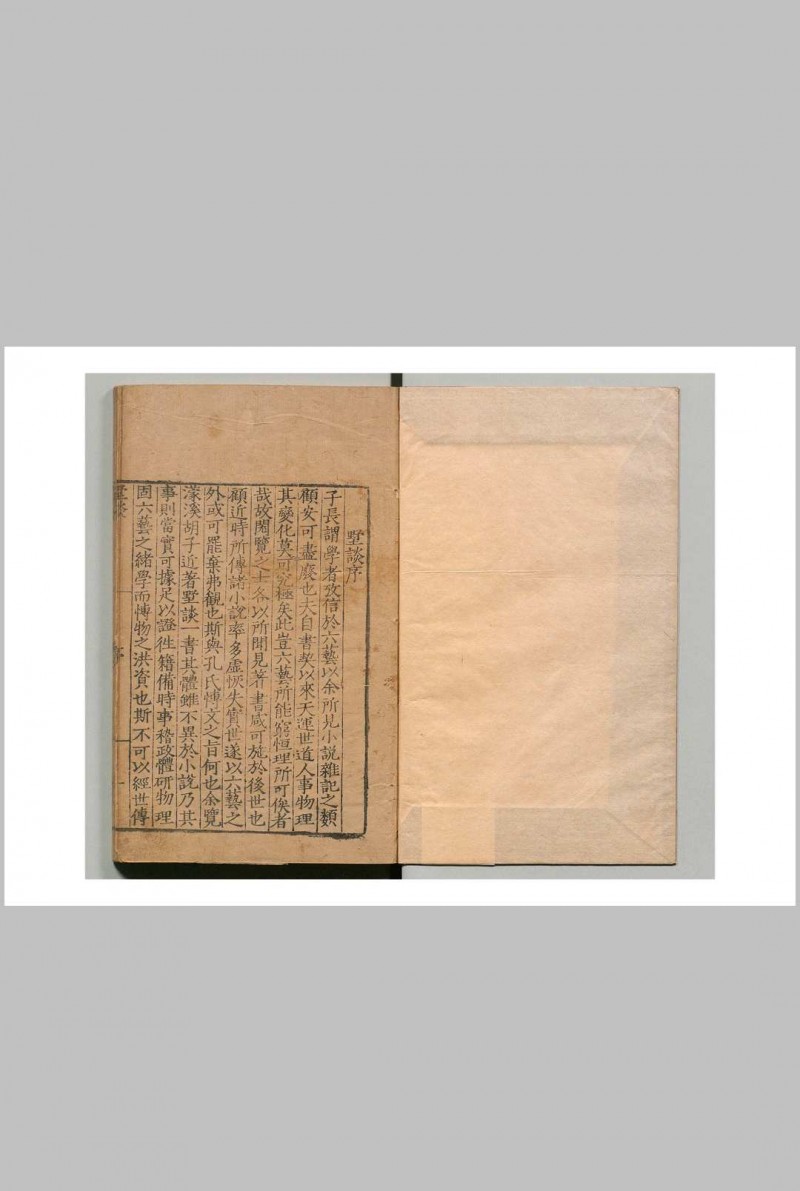 墅談序
子長謂學者攷信於六藝以余所見小說雜記之類
顧安可盡廢也夫自書契以來天運世道人事物理
其變化莫可究極矣此豈六藝所能窮恒理所可俟者
哉故閎覽之士各以所聞見著書咸可施於後世也
顧近時所傳諸小說率多虛恢失實世遂以六藝之
外或可罷棄弗觀也斯與孔氏博文之旨何也余覽
濛溪胡子近著墅談一書其體雖不異於小說乃其
事則當實可據足以證徃籍備時事稽政體研物理
固六藝之緒學而博物之洪資也斯不可以經世傳
墅談
序
一